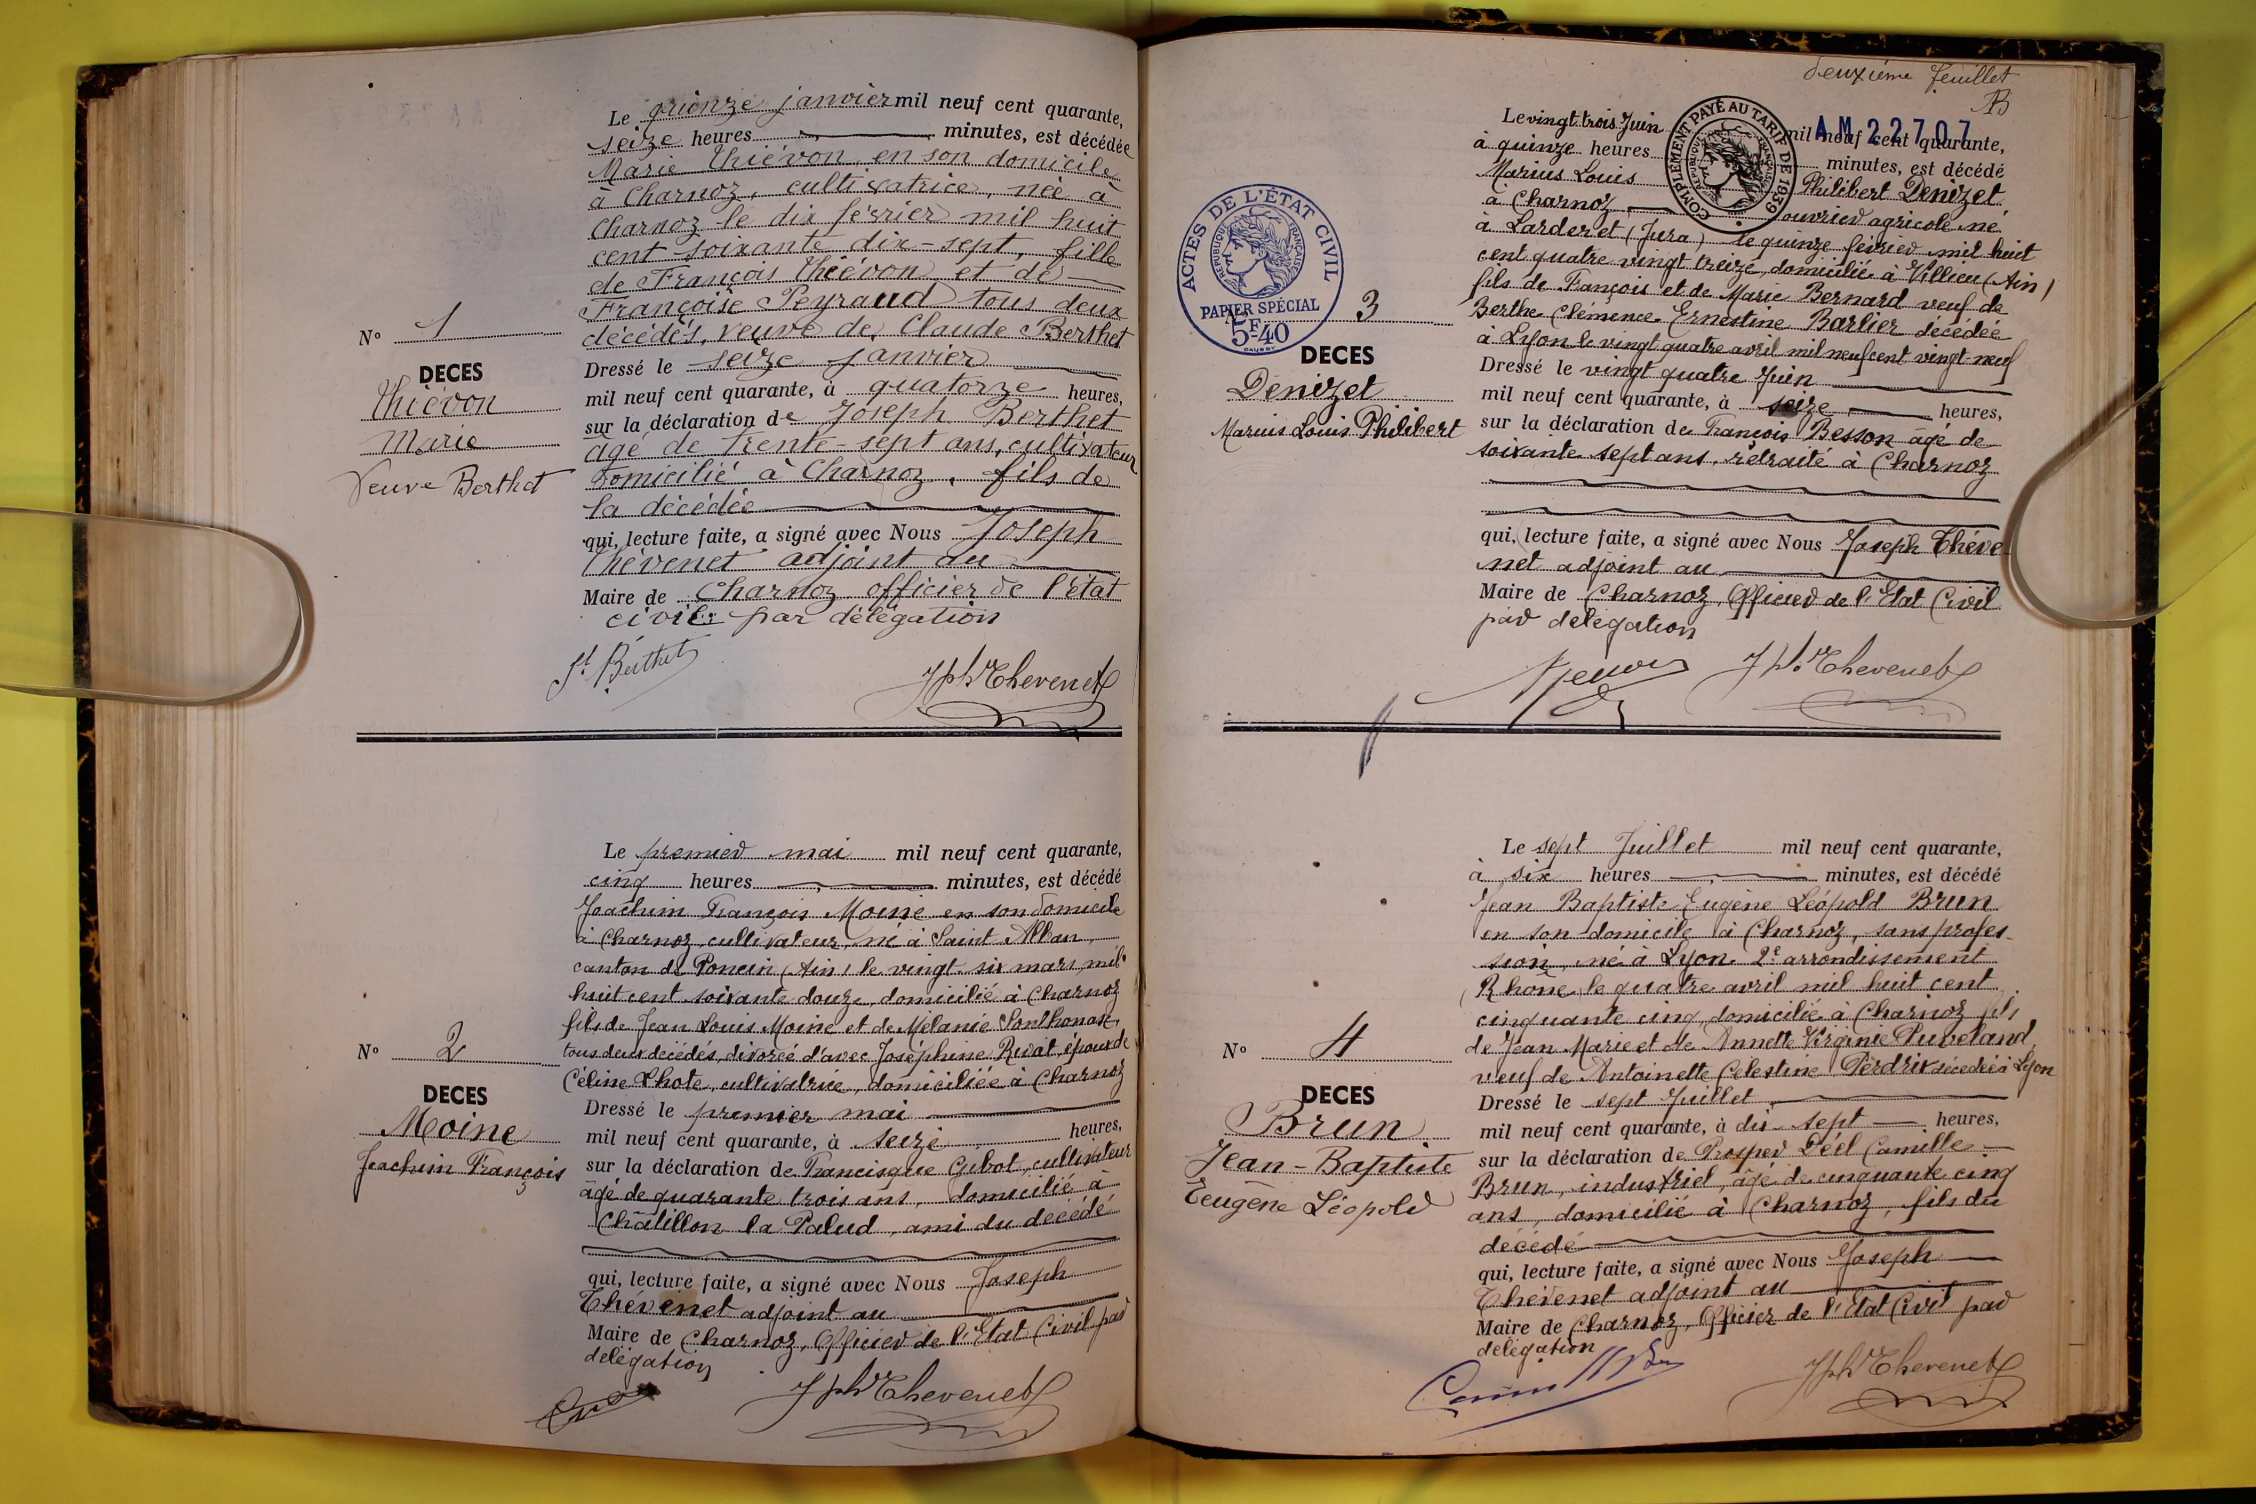 Le quinze janvier mil neuf cent quarante,
seize heures minutes, est décédée
Marie Thiévon, en son domicile
à Charnoz, cultivatrice, née à
Charnoz le dix février mil huit
cent soixante dix-sept, fille
de François Thiévon et de
Françoise Peyraud tous deux
décédés, veuve de Claude Berthet
Dressé le seize janvier
mil neuf cent quarante, à quatorze heures,
sur la déclaration de Joseph Berthet
âgé de trente-sept ans, cultivateur
domicilié à Charnoz, fils de
la décédée
qui, lecture faite, a signé avec Nous Joseph
Thévenet adjoint au
Maire de Charnoz officier de l'état
civil par délégation
Jh Berthet
Jph Thevenet
N° 1
DECES
Thiévon
Marie
Veuve Berthet
Le premier mai mil neuf cent quarante,
cinq heures minutes, est décédé
Joachim François Moine en son domicile
à Charnoz, cultivateur, né à Saint Alban,
canton de Poncin (Ain) le vingt six mars mil
huit cent soixante douze, domicilié à Charnoz
fils de Jean Louis Moine et de Mélanie Sonthonax
tous deux décédés, divorcé d'avec Joséphine Rivat, époux de
Céline Lhote, cultivatrice, domiciliée à Charnoz
Dressé le premier mai
mil neuf cent quarante, à seize heures,
sur la déclaration de Francisque Cubot, cultivateur
âgé de quarante trois ans, domicilié à
Châtillon la Palud, ami du décédé
qui, lecture faite, a signé avec Nous Joseph
Thévenet adjoint au
Maire de Charnoz, Officier de l'Etat Civil par
délégation
Jph Thevenet
N° 2
DECES
Moine
Joachim François
deuxième feuillet
AM 22707
COMPLÉMENT PAYÉ AU TARIF DE 1939
RÉPUBLIQUE FRANÇAISE
Le vingt trois Juin mil neuf cent quarante,
à quinze heures minutes, est décédé
Marius Louis Philibert Denizet
à Charnoz, ouvrier agricole né
à Larderet (Jura) le quinze février mil huit
cent quatre vingt treize, domicilié à Villieu (Ain)
fils de François et de Marie Bernard veuf de
Berthe Clémence Ernestine Barlier décédée
à Lyon le vingt quatre avril mil neuf cent vingt neuf
Dressé le vingt quatre Juin
mil neuf cent quarante, à seize heures,
sur la déclaration de François Besson âgé de
soixante sept ans, retraité à Charnoz
qui, lecture faite, a signé avec Nous Joseph Théve-
net adjoint au
Maire de Charnoz, Officier de l'Etat Civil
par délégation
Jph Thevenet
ACTES DE L'ÉTAT CIVIL
RÉPUBLIQUE FRANÇAISE
PAPIER SPÉCIAL
5F40
N° 3
DECES
Denizet
Marius Louis Philibert
Le sept Juillet mil neuf cent quarante,
à six heures minutes, est décédé
Jean Baptiste Eugène Léopold Brun
en son domicile à Charnoz, sans profes-
sion, né à Lyon 2e arrondissement
(Rhône) le quatre avril mil huit cent
cinquante cinq, domicilié à Charnoz fils
de Jean Marie et de Annette Virginie Puveland,
veuf de Antoinette Célestine Perdrix décédée à Lyon
Dressé le sept Juillet
mil neuf cent quarante, à dix sept heures,
sur la déclaration de Prosper Camille
Brun, industriel, âgé de cinquante cinq
ans, domicilié à Charnoz, fils du
décédé
qui, lecture faite, a signé avec Nous Joseph
Thévenet adjoint au
Maire de Charnoz, Officier de l'Etat Civil par
délégation
Jph Thevenet
N° 4
DECES
Brun
Jean-Baptiste
Eugène Léopold